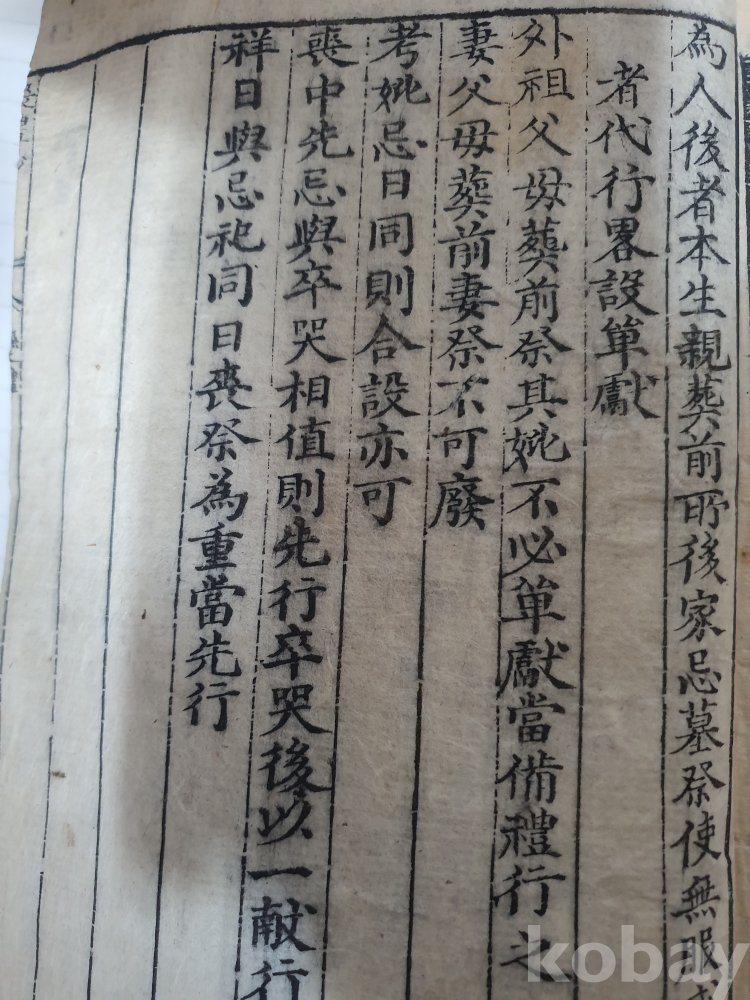 為人後者本生親葬前所後家忌墓祭使無服
者代行畧設單獻
外祖父母葬前祭其妣不必單獻當備禮行之
妻父母葬前妻祭不可廢
考妣忌日同則合設亦可
喪中先忌與卒哭相值則先行卒哭後以一献行
祥日與忌祀同日喪祭為重當先行
kobay